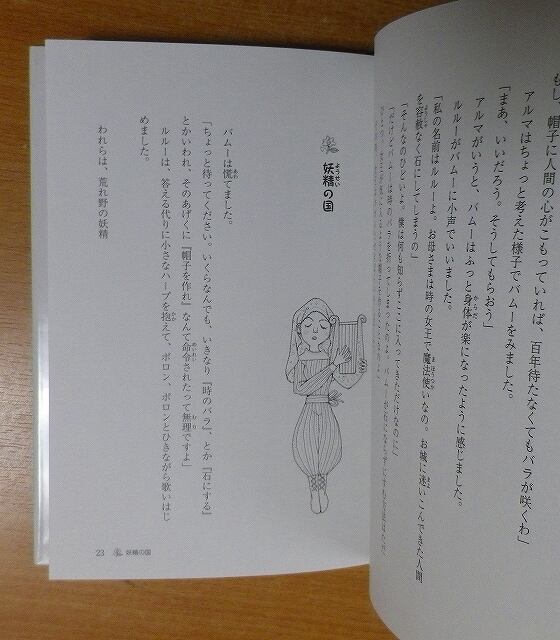 もし、帽子に人間の心がこもっていれば、百年待たなくてもバラが咲くわ」
アルマはちょっと考えた様子でバムーをみました。
「まあ、いいだろう。そうしてもらおう」
アルマがいうと、バムーはふっと身体が楽になったように感じました。
ルルーがバムーに小声でいいました。
「私の名前はルルーよ。お母さまは時の女王で魔法使いなの。お城に迷いこんできた人間
を容赦なく石にしてしまうの」
「そんなのひどいよ。僕は何も知らずここに入ってきただけなのに」
「だけどバムーは時のバラを折ってしまったのよ。
妖精の国
バムーは慌てました。
「ちょっと待ってください。いくらなんでも、いきなり『時のバラ』とか『石にする』
とかいわれ、そのあげくに『帽子を作れ』なんて命令されたって無理ですよ」
ルルーは、答える代りに小さなハープを抱えて、ポロン、ポロンとひきながら歌いはじ
めました。
われらは、荒れ野の妖精
23 妖精の国